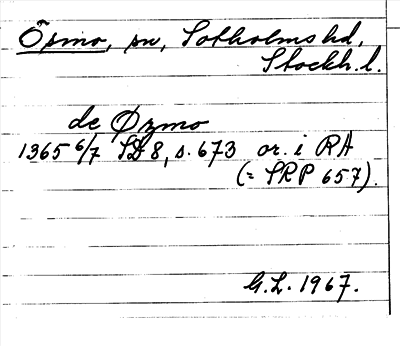 Ösmo, sn, Sotholms hd,
Stockh. l.
de Øzmo
1365 6/7 SD 8, s. 673 or. i RA
(= SRP 657).
G.L. 1967.